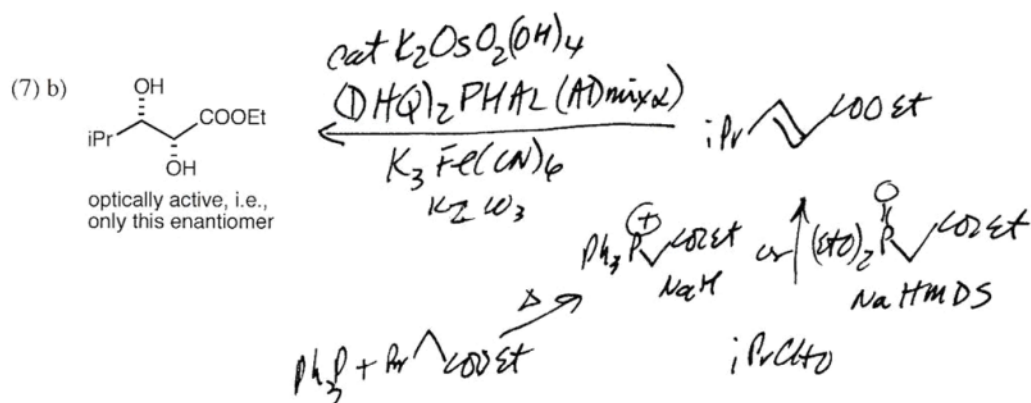 (7) b)
OH
iPr
COOEt
OH
optically active, i.e.,
only this enantiomer
cat K2OsO2(OH)4
(DHQ)2 PHAL (ADmix α)
K3Fe(CN)6
K2CO3
iPr COOEt
Ph3P+ CO2Et
NaH
or
(EtO)2P O CO2Et
NaHMDS
Δ
Ph3P + Br COOEt
iPrCHO